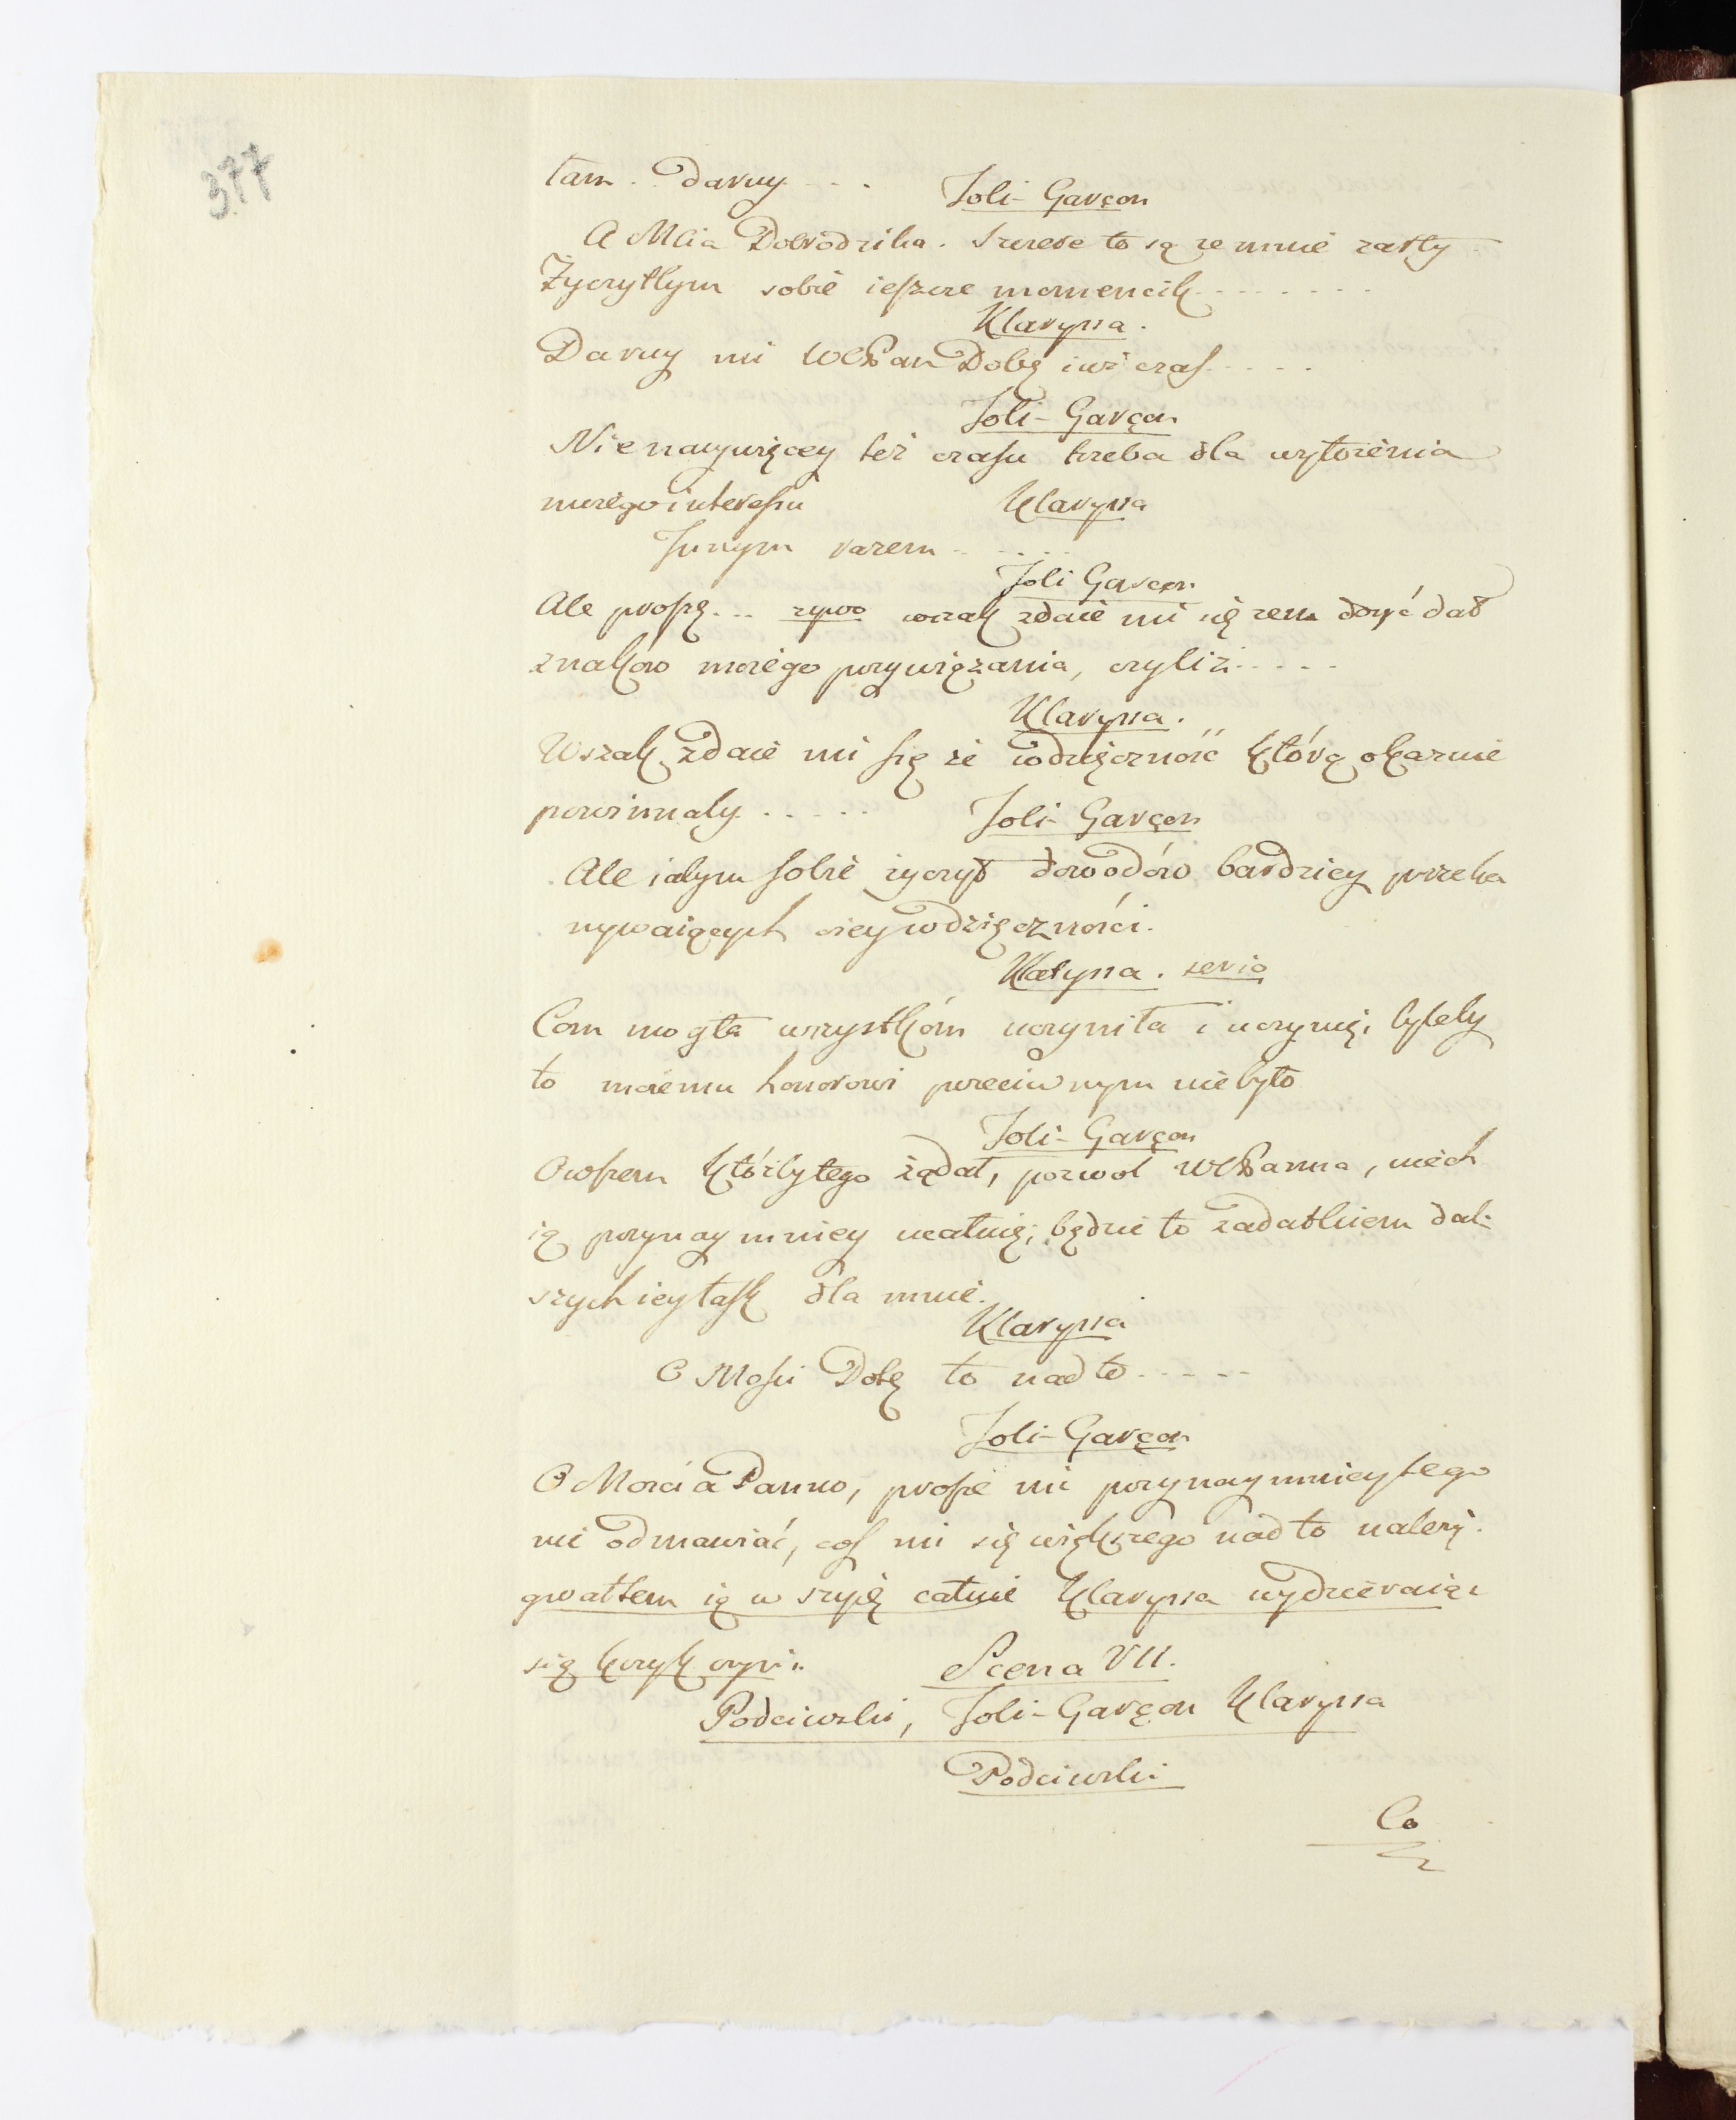 377
tam. Daruy....
Joli-Garçon
A Mcia Dobrodzika. Szczere to są ze mnie zarty
Życzyłbym sobie ieszcze momencik........
Klaryssa.
Daruy mi WPan Dobg iuż czas.....
Joli-Garçon
Nie naywięcey też czasu trzeba dla wyłożenia
moiego interessu
Klaryssa
Innym razem......
Joli Garçon
Ale proszę... żywo wszak zdaie mi się żem dosyć dał
znaków moiego przywiązania, czyliż.....
Klaryssa.
Wszak zdaie mi się że wdzięczność którą okazuie
powinnaby.....
Joli-Garçon
Ale iabym sobie życzył dowodów bardziey przeko
nywaiących oiey wdzięczności.
Klaryssa. serio
Com mogła wszystkom uczyniła i uczynię, byleby
to moiemu honorowi przeciwnym nie było
Joli-Garçon
Owszem któżby tego żądał, pozwol WPanna, niech
ią przynaymniey ucałuię; będzie to zadatkiem dal-
szych iey łask dla mnie.
Klaryssa
O Mosci Dobg to nadto.....
Joli-Garçon
O Moscia Panno, proszę mi przynaymniey tego
nie odmawiać, coś mi się większego nad to należy.
gwałtem ią w szyię całuie Klaryssa wydzieraiąc
się krzyk czyni.
Scena VII.
Podciwski, Joli-Garçon Klaryssa
Podciwski
Co